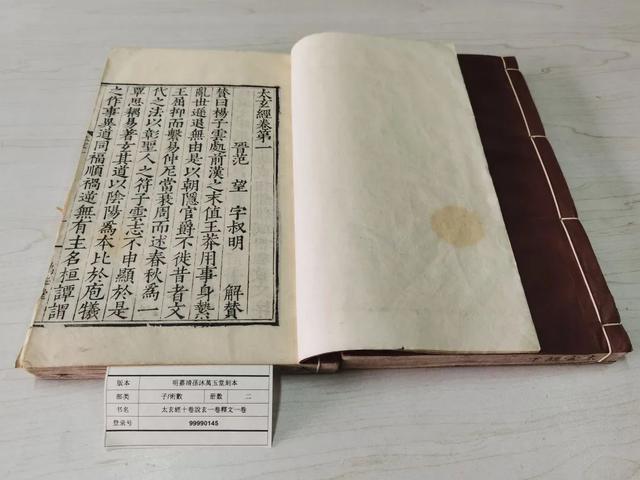 太玄經卷第一
晉范 望 字叔明 解贊
贊曰楊子雲處前漢之末值王莽用事身縶
亂世遜退無由是以朝隱官爵不徙昔者文
王屈抑而繫易仲尼當衰周而述春秋為一
代之法以彰聖人之符子雲志不申顯於是
覃思耦易著玄其道以陰陽為本比於庖犧
之作事異道同福順禍逆無有主名桓譚謂
版本 明嘉靖孫沐萬玉堂刻本
部类 子/術數 册數 二
书名 太玄經十卷說玄一卷釋文一卷
登录号 99990145